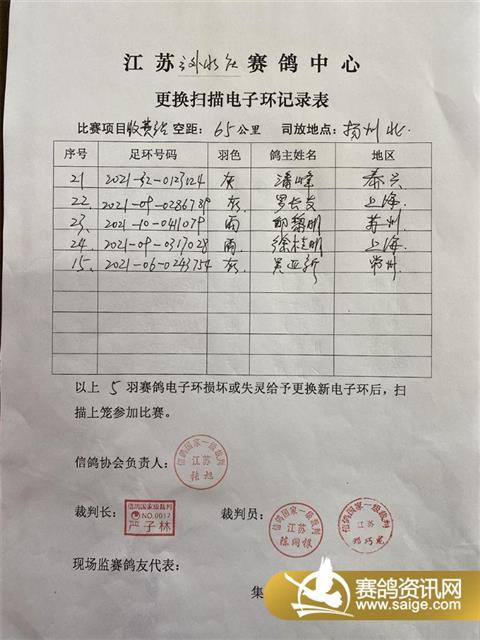 江苏 赛鸽中心
更换扫描电子环记录表
比赛项目收费站 空距: 65公里 司放地点: 扬州北
序号 足环号码 羽色 鸽主姓名 地区
21 2021-32-0123124 灰 潘峰 泰兴
22 2021-09-0286789 灰 罗长友 上海
23. 2021-10-041079 雨 黎明 苏州
24. 2021-09-0317028 雨 徐桂明 上海
15. 2021-06-0243754 灰 吴亚新 常州
以上 5 羽赛鸽电子环损坏或失灵给予更换新电子环后,扫
描上笼参加比赛。
信鸽协会负责人:
信鸽国家一级裁判
江苏
张旭
裁判长:
信鸽国家级裁判
NO.0012
严子林
裁判员:
信鸽国家一级裁判
江苏
信鸽国家一级裁判
江苏
现场监赛鸽友代表:
集
赛鸽资讯网
www.saige.com